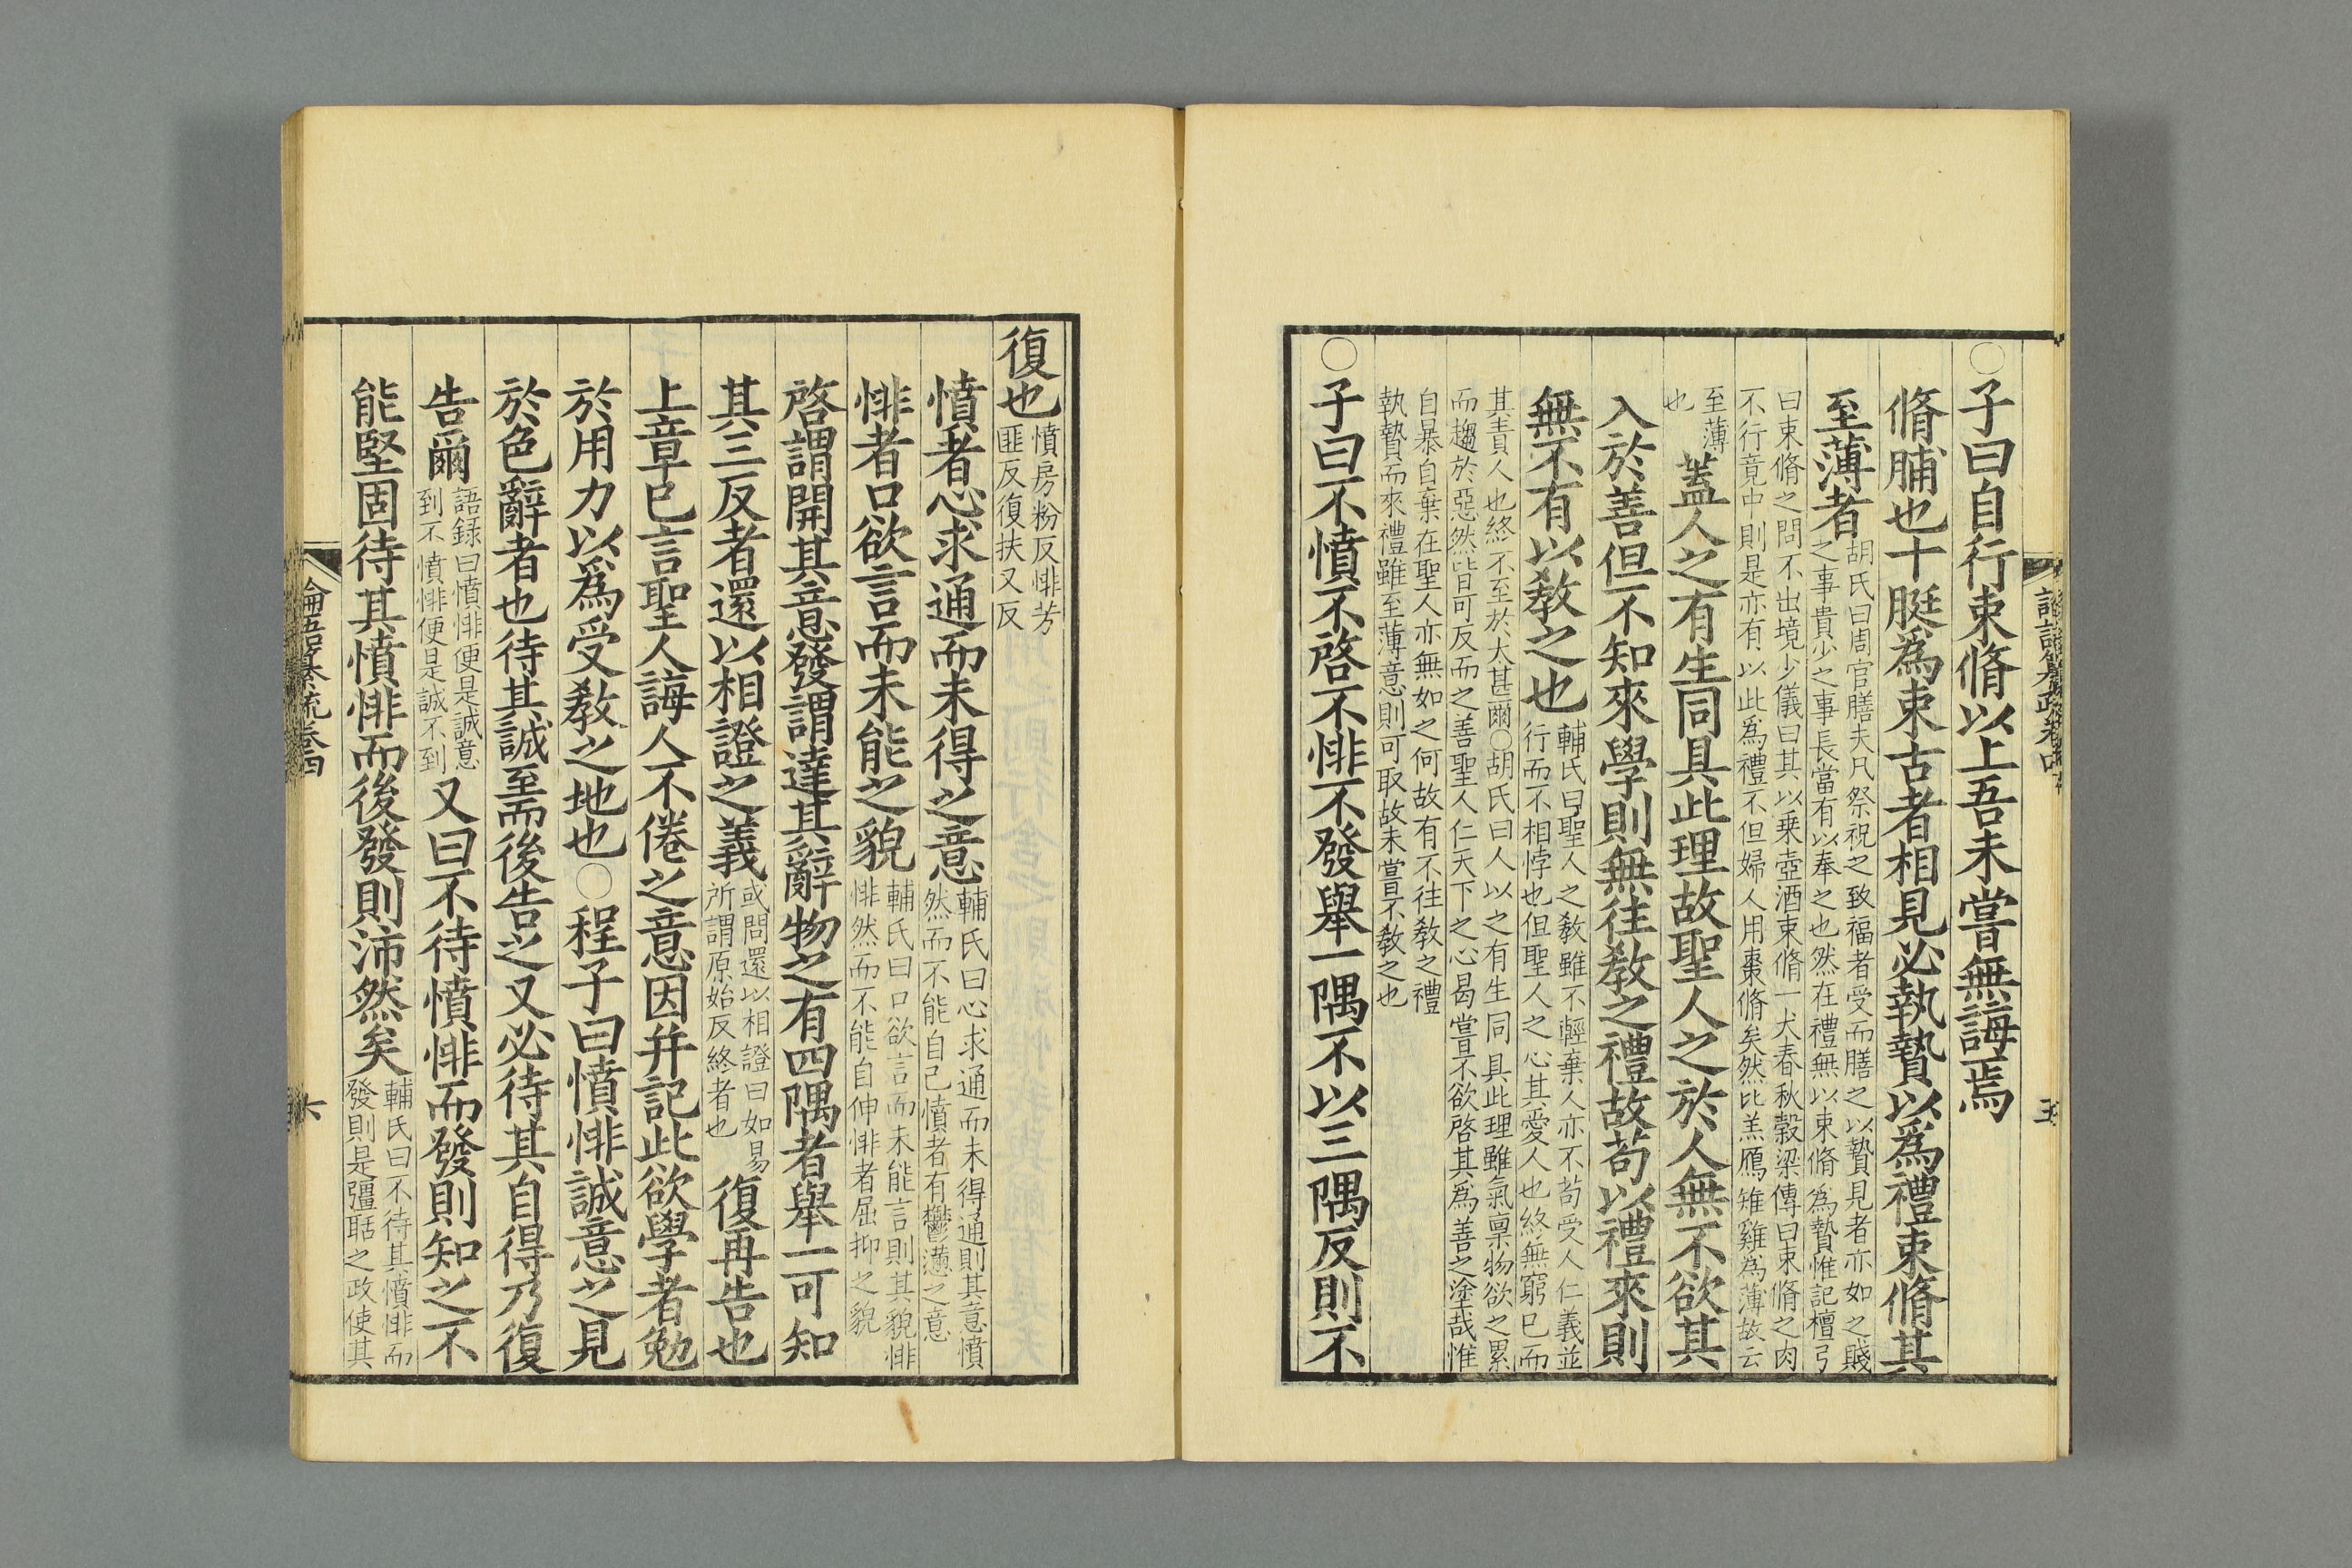 ○子曰自行束脩以上吾未嘗無誨焉
脩脯也十脡為束古者相見必執贄以為禮束脩其
至薄者
胡氏曰周官膳夫凡祭祝之致福者受而膳之以贄見者亦如之賤
之事貴少之事長當有以奉之也然在禮無以束脩為贄惟記檀弓
曰束脩之問不出境少儀曰其以乗壺酒束脩一犬春秋穀梁傳曰束脩之肉
不行竟中則是亦有以此為禮不但婦人用棗脩矣然比羔鴈雉雞為薄故云
至薄
也
蓋人之有生同具此理故聖人之於人無不欲其
入於善但不知來學則無往教之禮故苟以禮來則
無不有以教之也
輔氏曰聖人之教雖不輕棄人亦不苟受人仁義並
行而不相悖也但聖人之心其愛人也終無窮已而
其責人也終不至於大甚爾○胡氏曰人以之有生同具此理雖氣稟物欲之累
而趨於惡然皆可反而之善聖人仁天下之心曷嘗不欲啓其為善之塗哉惟
自暴自棄在聖人亦無如之何故有不往教之禮
執贄而來禮雖至薄意則可取故未嘗不教之也
○子曰不憤不啓不悱不發舉一隅不以三隅反則不
復也
憤房粉反悱芳
匪反復扶又反
憤者心求通而未得之意
輔氏曰心求通而未得通則其意憤
然而不能自已憤者有鬱懣之意
悱者口欲言而未能之貌
輔氏曰口欲言而未能言則其貌悱
悱然而不能自伸悱者屈抑之貌
啓謂開其意發謂達其辭物之有四隅者舉一可知
其三反者還以相證之義
或問還以相證曰如易
所謂原始反終者也
復再告也
上章已言聖人誨人不倦之意因并記此欲學者勉
於用力以為受教之地也○程子曰憤悱誠意之見
於色辭者也待其誠至而後告之又必待其自得乃復
告爾
語録曰憤悱便是誠意
到不憤悱便是誠不到
又曰不待憤悱而發則知之不
能堅固待其憤悱而後發則沛然矣
輔氏曰不待其憤悱而
發則是彊聒之政使其
論語纂疏卷四
六